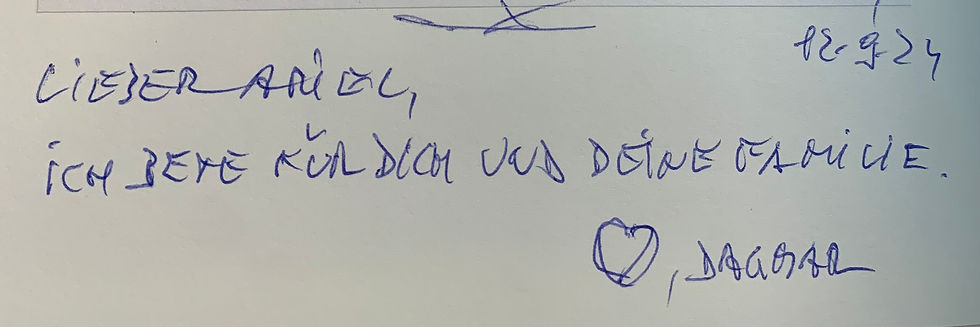 12.9.24
LIEBER ARIEL,
ICH BETE FÜR DICH UND DEINE FAMILIE.
♡, DAGMAR